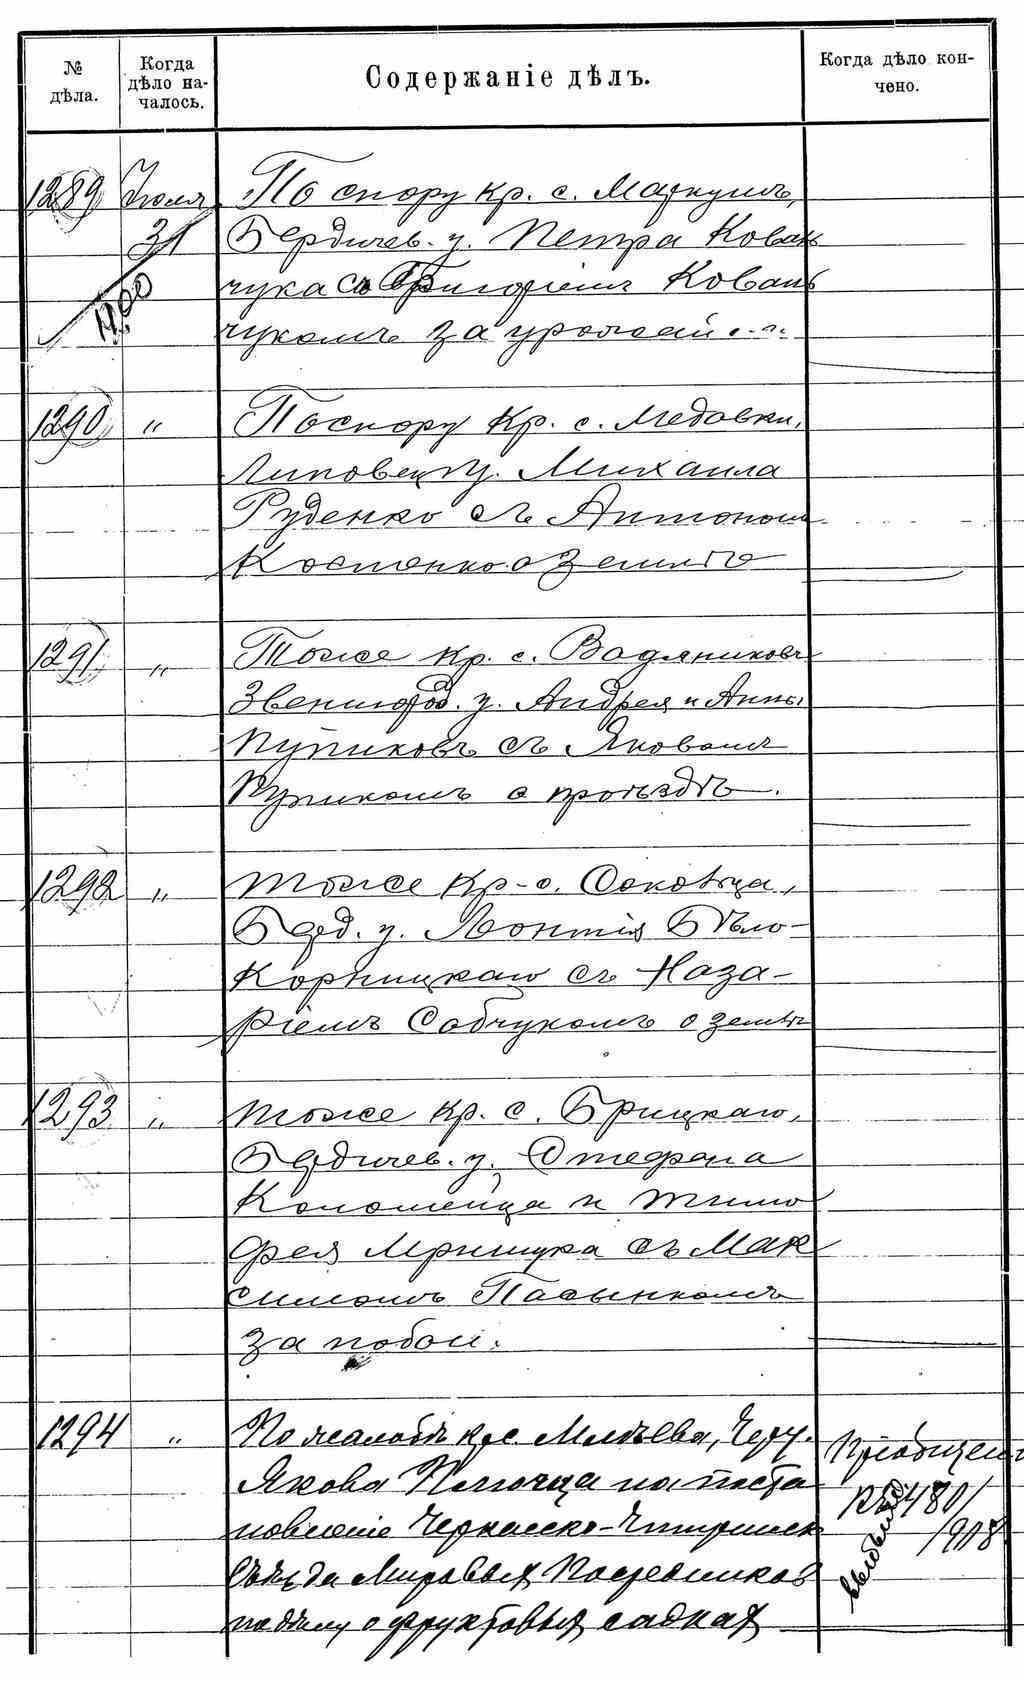 № дѣла.
Когда дѣло началось.
Содержаніе дѣлъ.
Когда дѣло кончено.
1289 Іюля По спору кр. с. Маркушъ,
31 Бердичев. у. Петра Коваль
1900 чука съ Григоріемъ Коваль
чукомъ за урожай
1290 „ По спору кр. с. Медовки,
Липовец. у. Михаила
Руденко съ Антономъ
Костенко о землѣ
1291 „ Тоже кр. с. Водяниковъ
Звенигород. у. Андрея и Анны
съ Яковомъ
о проѣздѣ.
1292 „ Тоже кр. с.
Берд. у. Леонтія Бѣло-
Корницкаго съ Наза-
ріемъ Собчукомъ о землѣ
1293 „ Тоже кр. с. Брицкаго,
Бердичев. у. Стефана
Коломейца и Тимо
фея Мрищука съ Мак
симомъ Пасынкомъ
за побои.
1294 „ По жалобѣ кр. с. Млѣева, Чер. у.
Якова на поста
новленіе Черкасско-Чигиринск
Съѣзда Мировых Посредников
по дѣлу о фруктовых садках
Пріобщено
к 4801/
/908